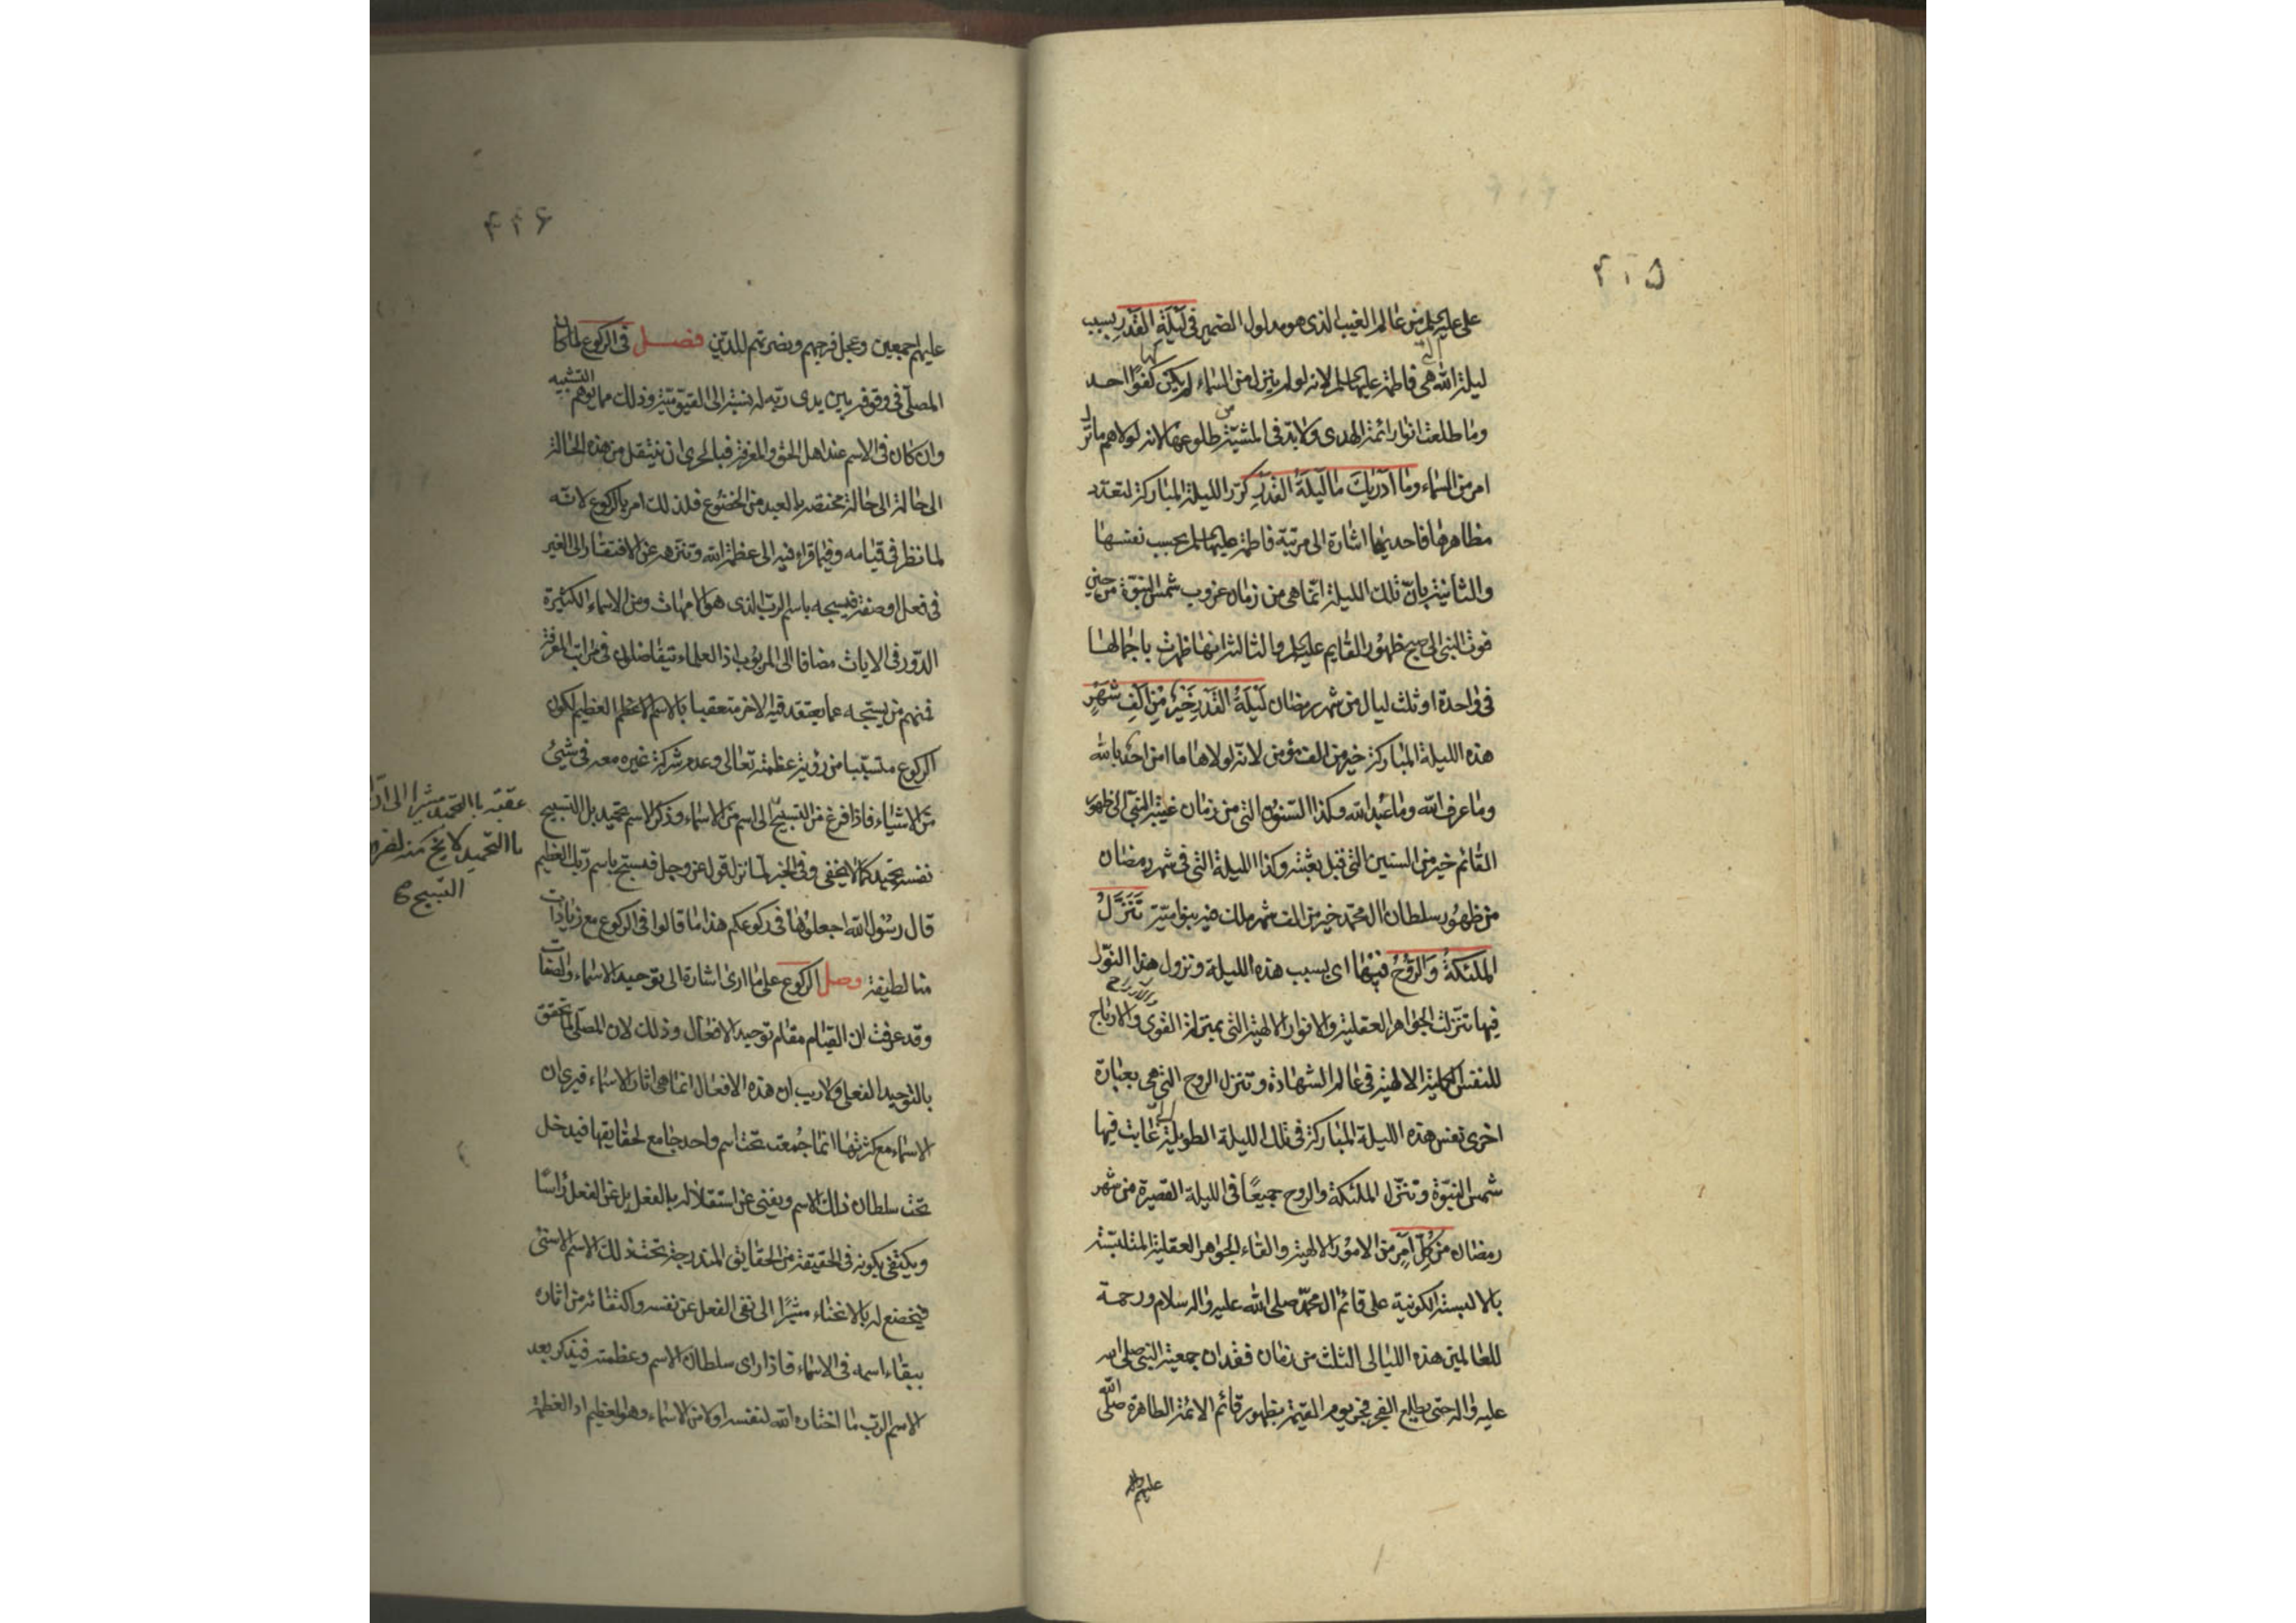 ۴۱۵
على عليه السلم من عالم الغيب الذى هو مدلول الضمير فى لَيْلَةِ القَدْرِ بسبب
ليلة الله التى هى فاطمة عليها السلم لانه لو لم ينزل من السماء لم يكن لها كفوا احد
وما طلعت انوار ائمة الهدى ولا بد فى المشيّة من طلوعها لانه لولاهم ما نزل
امر من السماء وما اَدْرٰيكَ ما لَيْلَةُ القَدْرِ كرّر الليلة المباركة لتعدّد
مظاهرها فاحديها اشارة الى مرتبة فاطمة عليها السلم بحسب نفسها
والثانية بانّ تلك الليلة انّما هى من زمان غروب شمس النبوّة من حين
فوت النبى الى صبح ظهور القايم عليه السلم والثالثة انها ظهرت باجمالها
فى واحدة او ثلث ليال من شهر رمضان لَيْلَةُ القَدْرِ خَيْرٌ مِنْ اَلْفِ شَهْرٍ
هذه الليلة المباركة خير من الف مؤمن لانه لولاها ما امن احد بالله
وما عرف الله وما عبد الله وكذا السنون التى من زمان غيبة النبىّ الى ظهور
القائم خير من السنين التى قبل بعثته وكذا الليلة التى فى شهر رمضان
من ظهور سلطان ال محمّد خير من الف شهر ملك فيه بنو اميّة تَنَزَّلُ
المَلٰئِكَةُ وَالرُّوحُ فيهٰا اى بسبب هذه الليلة ونزول هذا النور
فيها تنزّلت الجواهر العقلية والانوار الالهية التى بمنزلة القوى والارباح
والارواح
للنفس الكلية الالهية فى عالم الشهادة وتنزل الروح التى هى بعبارة
اخرى نفس هذه الليلة المباركة فى تلك الليلة الطويلة التى غابت فيها
شمس النبوّة وتنزّل الملئكة والروح جميعًا فى الليلة القصيرة من شهر
رمضان مِنْ كُلِّ اَمْرٍ من الامور الالهية والقاء الجواهر العقلية المتلبّسة
بالالبسة الكونية على قائم ال محمّد صلى الله عليه واله سلام ورحمة
للعالمين هذه الليالى الثلث من زمان فقدان جمعية النبى صلى الله
عليه واله حتى يطلع الفجر فجر يوم القيمة بظهور قائم الائمة الطاهرة صلى الله
عليهم والله
۴۱۶
عليهم اجمعين وعجل فرجهم وبضرتهم للدّين فصل فى الركوع لما كان
المصلّى فى وقوفه بين يدى ربّه له نسبة الى القيّوميّة وذلك مما يوهم التشبيه
وان كان فى الاسم عند اهل الحق والمعرفة فبالحرى ان ينتقل من هذه الحالة
الى حالة مختصة بالعبد من الخضوع فلذلك امر بالركوع لانّه
لما نظر فى قيامه وفيما قراء فيه الى عظمة الله وتنزهه عن الافتقار الى الغير
فى فعل او صفة فيسبحه باسم الرب الذى هو الامهات ومن الاسماء الكثيرة
الدّور فى الايات مضافا الى المربوب اذ العلماء يتفاضلون فى مراتب المعرفة
فمنهم من يسبّحه عما يعتقد فيه الاخر متعقبا بالاسم الاعظم العظيم لكون
الركوع متسبّبا من رؤية عظمته تعالى وعدم شركة غيره معه فى شيئ
من الاشياء فاذا فرغ من التسبيح الى اسم من الاسماء وذكر الاسم تحميد بل التسبيح
عقبّه بالتحميد مشيرا الى ان
بالتحميد لا يخ منه
التسبيح
نفسه تحميد كما لا يخفى وفى الخبر لما نزل قوله عز وجل فسبّح باسم ربّك العظيم
قال رسول الله اجعلوها فى ركوعكم هذا ما قالوا فى الركوع مع زيادات
منا لطيفة وصل الركوع على ما ارى اشارة الى توحيد الاسماء والصفات
وقد عرفت ان القيام مقام توحيد الافعال وذلك لان المصلّى لما تحقق
بالتوحيد الفعلى ولا ريب ان هذه الافعال انما هى اثار الاسماء فيرى ان
الاسماء مع كثرتها انما جُمعت تحت اسم واحد جامع لحقايقها فيدخل
تحت سلطان ذلك الاسم ويفنى عن استقلاله بالفعل بل عن الفعل رأسًا
ويكتفى بكونه فى الحقيقة من الحقايق المندرجة تحت ذلك الاسم الاسنى
فيخضع له بالانحناء مشيرًا الى نفى الفعل عن نفسه واكتفائه من اثاره
ببقاء اسمه فى الاسماء فاذا راى سلطان الاسم وعظمته فيذكر بعد
الاسم الرب ما اختاره الله لنفسه اولا من الاسماء وهو العظيم اذ العظمة